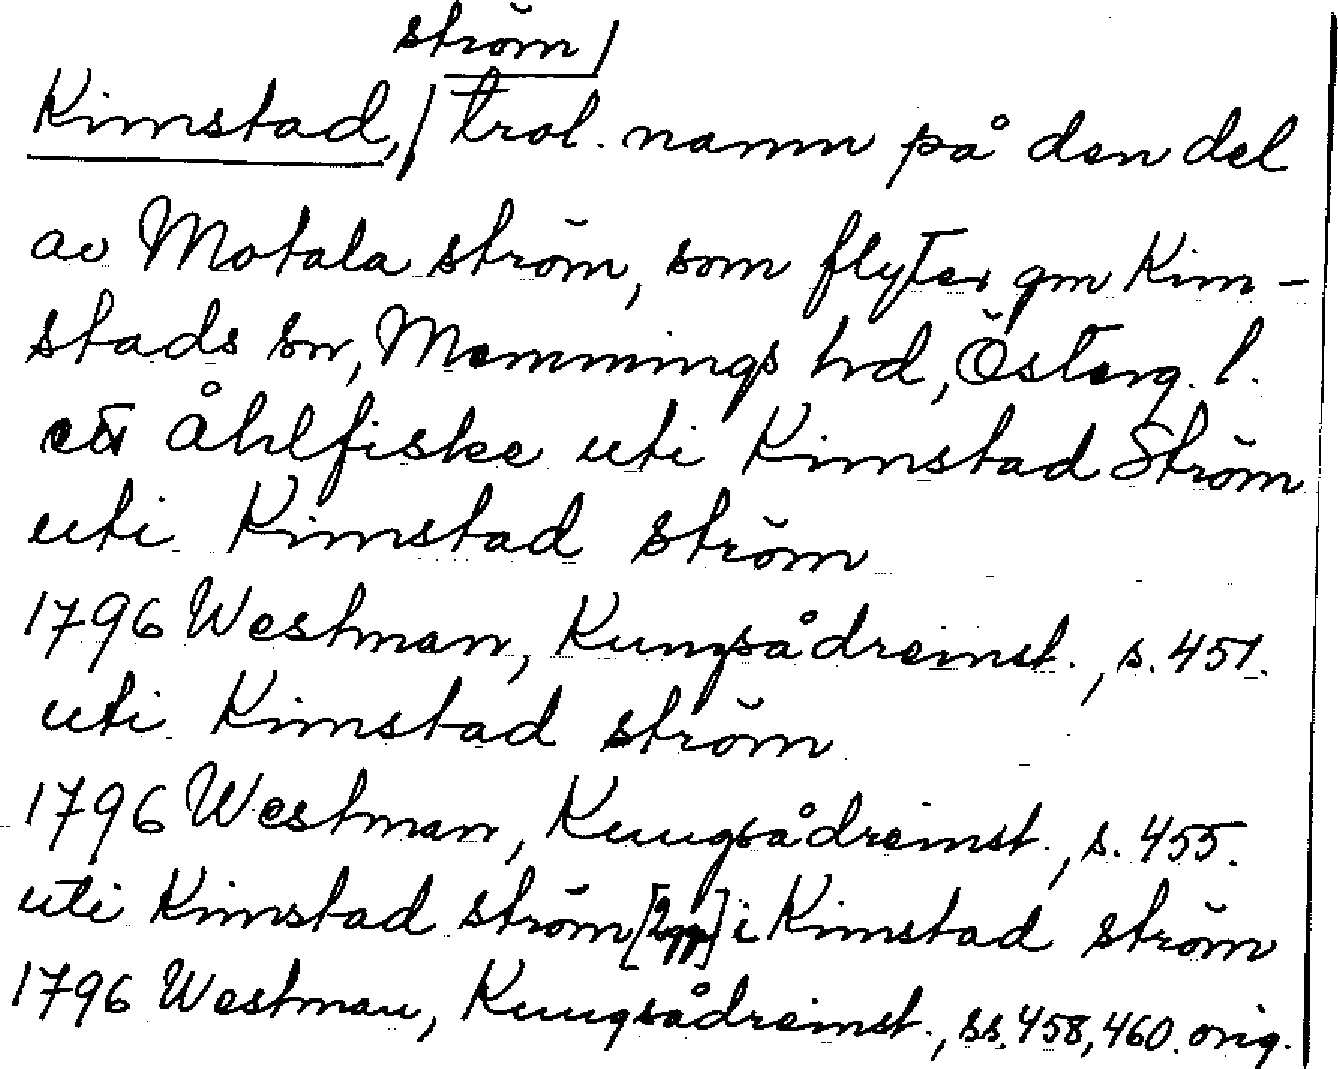 ström/
Kimstad,/ trol. namn på den del
av Motala ström, som flyter gm Kim-
stads sn, Memmings hd, Österg. l.
ett Åhlfiske uti Kimstad Ström
uti Kimstad ström
1796 Westman, Kungsådreinst., s. 451.
uti Kimstad ström
1796 Westman, Kungsådreinst., s. 455.
uti Kimstad ström [2 ggr] i Kimstad ström
1796 Westman, Kungsådreinst., ss. 458, 460. orig.